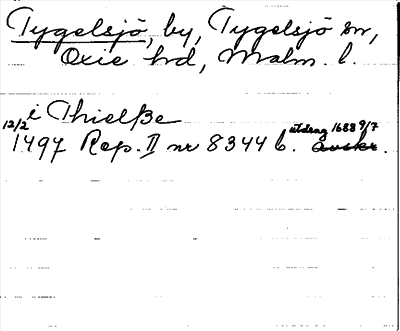 Tygelsjö, by, Tygelsjö sn,
Oxie hd, Malm. l.
i Thielße
12/2 1497 Rep. II nr 8344 b. utdrag 1688 9/7 Avskr.